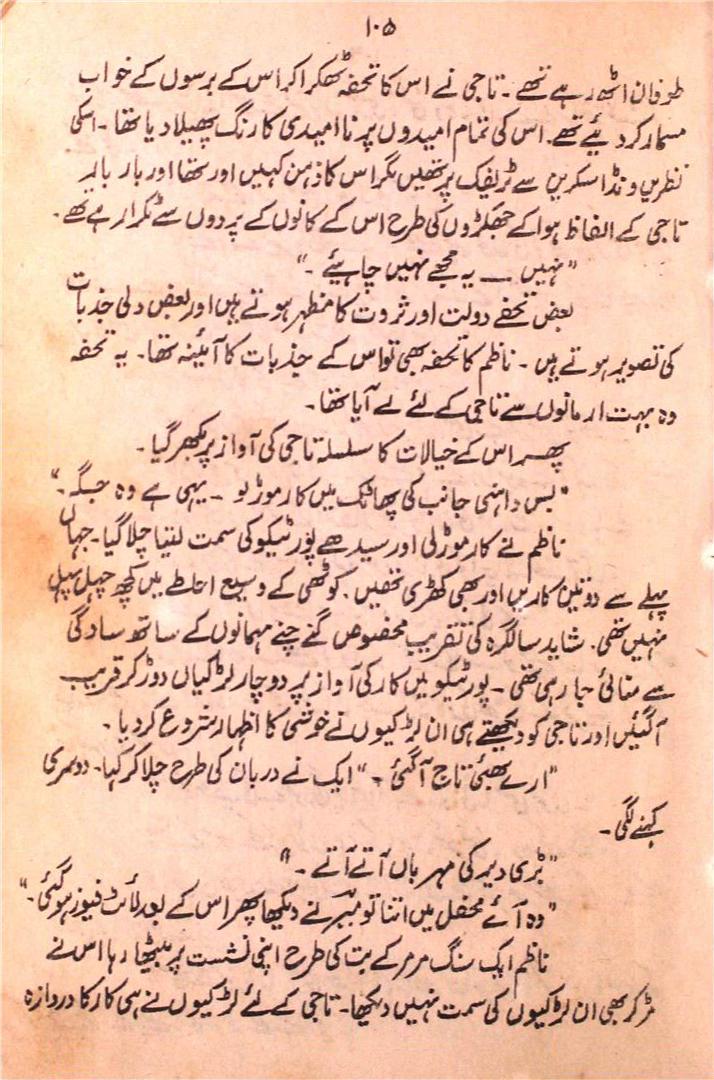 ۱۰۵
طوفان اٹھ رہے تھے ۔ تاجی نے اس کا تحفہ ٹھکرا کر اس کے برسوں کے خواب
مسمار کر دیئے تھے. اس کی تمام امیدوں پر نا امیدی کا رنگ پھیلا دیا تھا ۔ اسکی
نظریں ونڈ اسکرین سے ٹریفک پر تھیں مگر اس کا ذہن کہیں اور تھا اور بار بار
تاجی کے الفاظ ہوا کے جھکڑوں کی طرح اس کے کانوں کے پردوں سے ٹکرا رہے تھے ۔
"نہیں ـــ یہ مجھے نہیں چاہیئے ۔"
بعض تحفے دولت اور ثروت کا مظہر ہوتے ہیں اور بعض دلی جذبات
کی تصویر ہوتے ہیں ۔ ناظم کا تحفہ بھی تو اس کے جذبات کا آئینہ تھا ۔ یہ تحفہ
وہ بہت ارمانوں سے تاجی کے لئے لے آیا تھا ۔
پھر اس کے خیالات کا سلسلہ تاجی کی آواز پر بکھر گیا ۔
"بس داہنی جانب کی پھاٹک میں کار موڑ لو ۔ یہی ہے وہ جگہ ۔"
ناظم نے کار موڑلی اور سیدھے پورٹیکو کی سمت لیتا چلا گیا ۔ جہاں
پہلے سے دو تین کاریں اور بھی کھڑی تھیں . کوٹھی کے وسیع احاطے میں کچھ چہل پہل
نہیں تھی . شاید سالگرہ کی تقریب مخصوص گنے چنے مہمانوں کے ساتھ سادگی
سے منائی جا رہی تھی ۔ پورٹیکو میں کار کی آواز پر دو چار لڑکیاں دوڑ کر قریب
آگئیں اور تاجی کو دیکھتے ہی ان لڑکیوں نے خوشی کا اظہار شروع کر دیا ۔
"ارے بھئی تاج آگئی ۔" ایک نے دربان کی طرح چلا کر کہا ۔ دوسری
کہنے لگی ۔
"بڑی دیر کی مہرباں آتے آتے ۔"
"وہ آئے محفل میں اتنا تو میرؔ نے دیکھا پھر اس کے بعد لائٹ فیوز ہو گئی ۔"
ناظم ایک سنگ مرمر کے بت کی طرح اپنی نشست پر بیٹھا رہا اس نے
مڑ کر بھی ان لڑکیوں کی سمت نہیں دیکھا ۔ تاجی کے لئے لڑکیوں نے ہی کار کا دروازہ